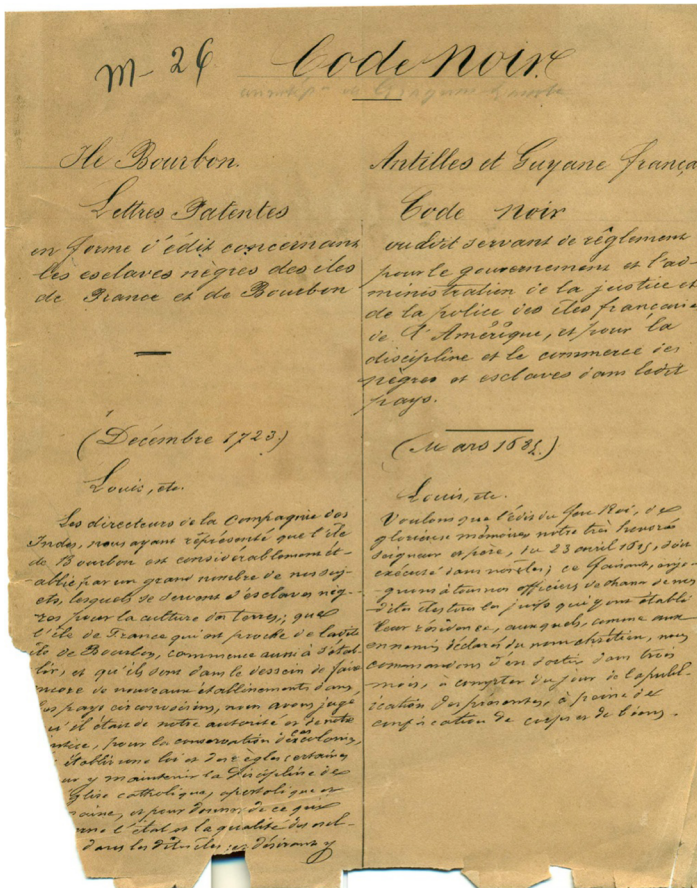 M- 26
Code Noir.
Ile Bourbon.
Lettres Patentes
en forme d'édit concernant
les esclaves nègres des îles
de France et de Bourbon
(Décembre 1723)
Louis, etc.
Les directeurs de la Compagnie des
Indes, nous ayant réprésenté que l'île
de Bourbon est considérablement ét-
ablie par un grand nombre de nos suj-
ets, lesquels se servent d'esclaves nèg-
res pour la culture des terres; que
l'île de France qui est proche de ladite
île de Bourbon, commence aussi à s'étab-
lir, et qu'ils sont dans le dessein de faire
encore de nouveaux établissements dans
les pays circonvoisins, nous avons jugé
qu'il était de notre autorité et de notre
justice, pour la conservation des colonies,
établir une loi et des règles certaines
pour y maintenir la discipline de
l'Eglise catholique, apostolique et
romaine, et pour donner de ce que
l'état et la qualité des escl-
dans les dites îles; et désirant y
Antilles et Guyane frança
Code Noir
ou édit servant de règlement
pour le gouvernement et l'ad-
ministration de la justice et
de la police des îles françaises
de l'Amérique, et pour la
discipline et le commerce des
nègres et esclaves dans ledit
pays.
(Mars 1685.)
Louis, etc.
Voulons que l'édit du feu Roi, de
glorieuse mémoire notre très honoré
seigneur et père, du 23 avril 1615, soit
exécuté dans nos îles; ce faisant, enjoi-
gnons à tous nos officiers de chasser de nos
dites îles tous les juifs qui y ont établi
leur résidence, auxquels, comme aux
ennemis déclarés du nom chrétien, nous
commandons d'en sortir dans trois
mois, à compter du jour de la publ-
ication des présentes, à peine de
confiscation de corps et de biens.